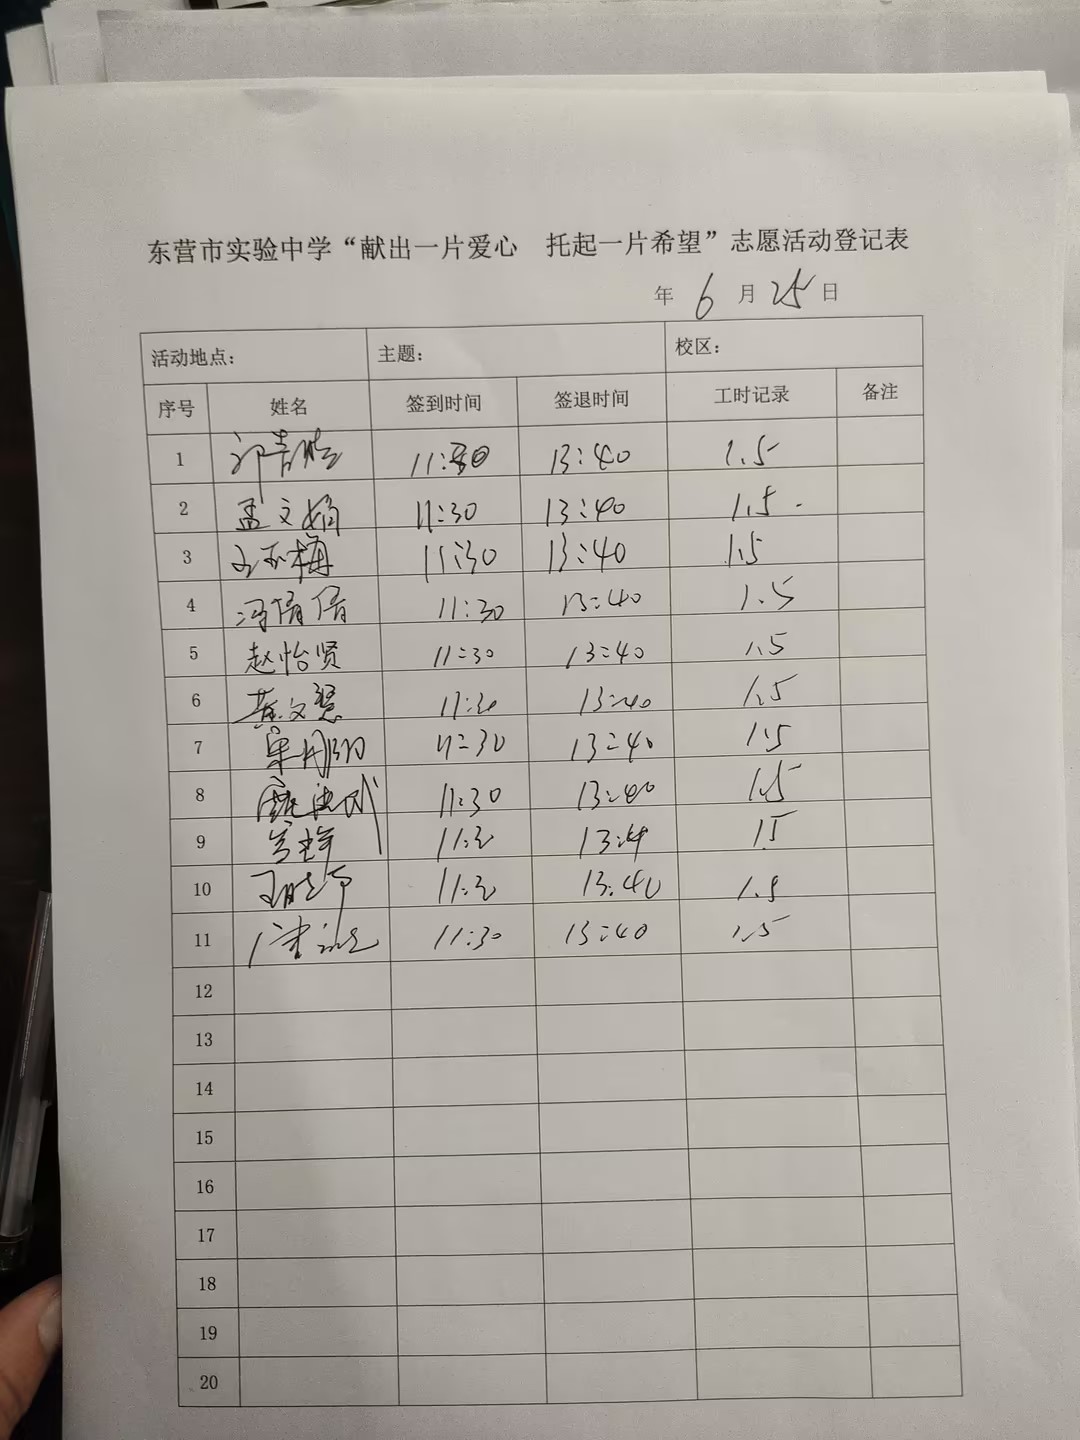 东营市实验中学“献出一片爱心 托起一片希望”志愿活动登记表
年 6 月 25 日
活动地点: 主题: 校区:
序号 姓名 签到时间 签退时间 工时记录 备注
1 11:30 13:40 1.5
2 孟文娟 11:30 13:40 1.5
3 11:30 13:40 1.5
4 冯倩倩 11:30 13:40 1.5
5 赵怡贤 11:30 13:40 1.5
6 黄文慧 11:30 13:40 1.5
7 11:30 13:40 1.5
8 11:30 13:40 1.5
9 11:30 13:40 1.5
10 11:30 13:40 1.5
11 11:30 13:40 1.5
12
13
14
15
16
17
18
19
20